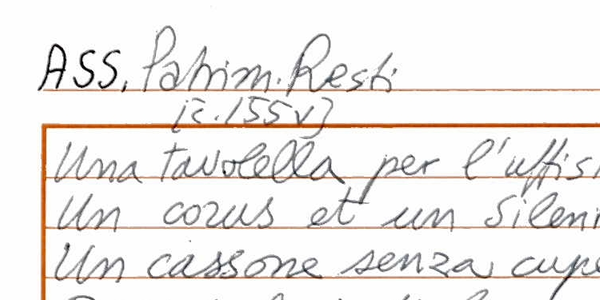 ASS. Patrim. Resti
[c. 155v]
Una tavolella per l'uffis
Un corus et un Silen
Un cassone senza cupe